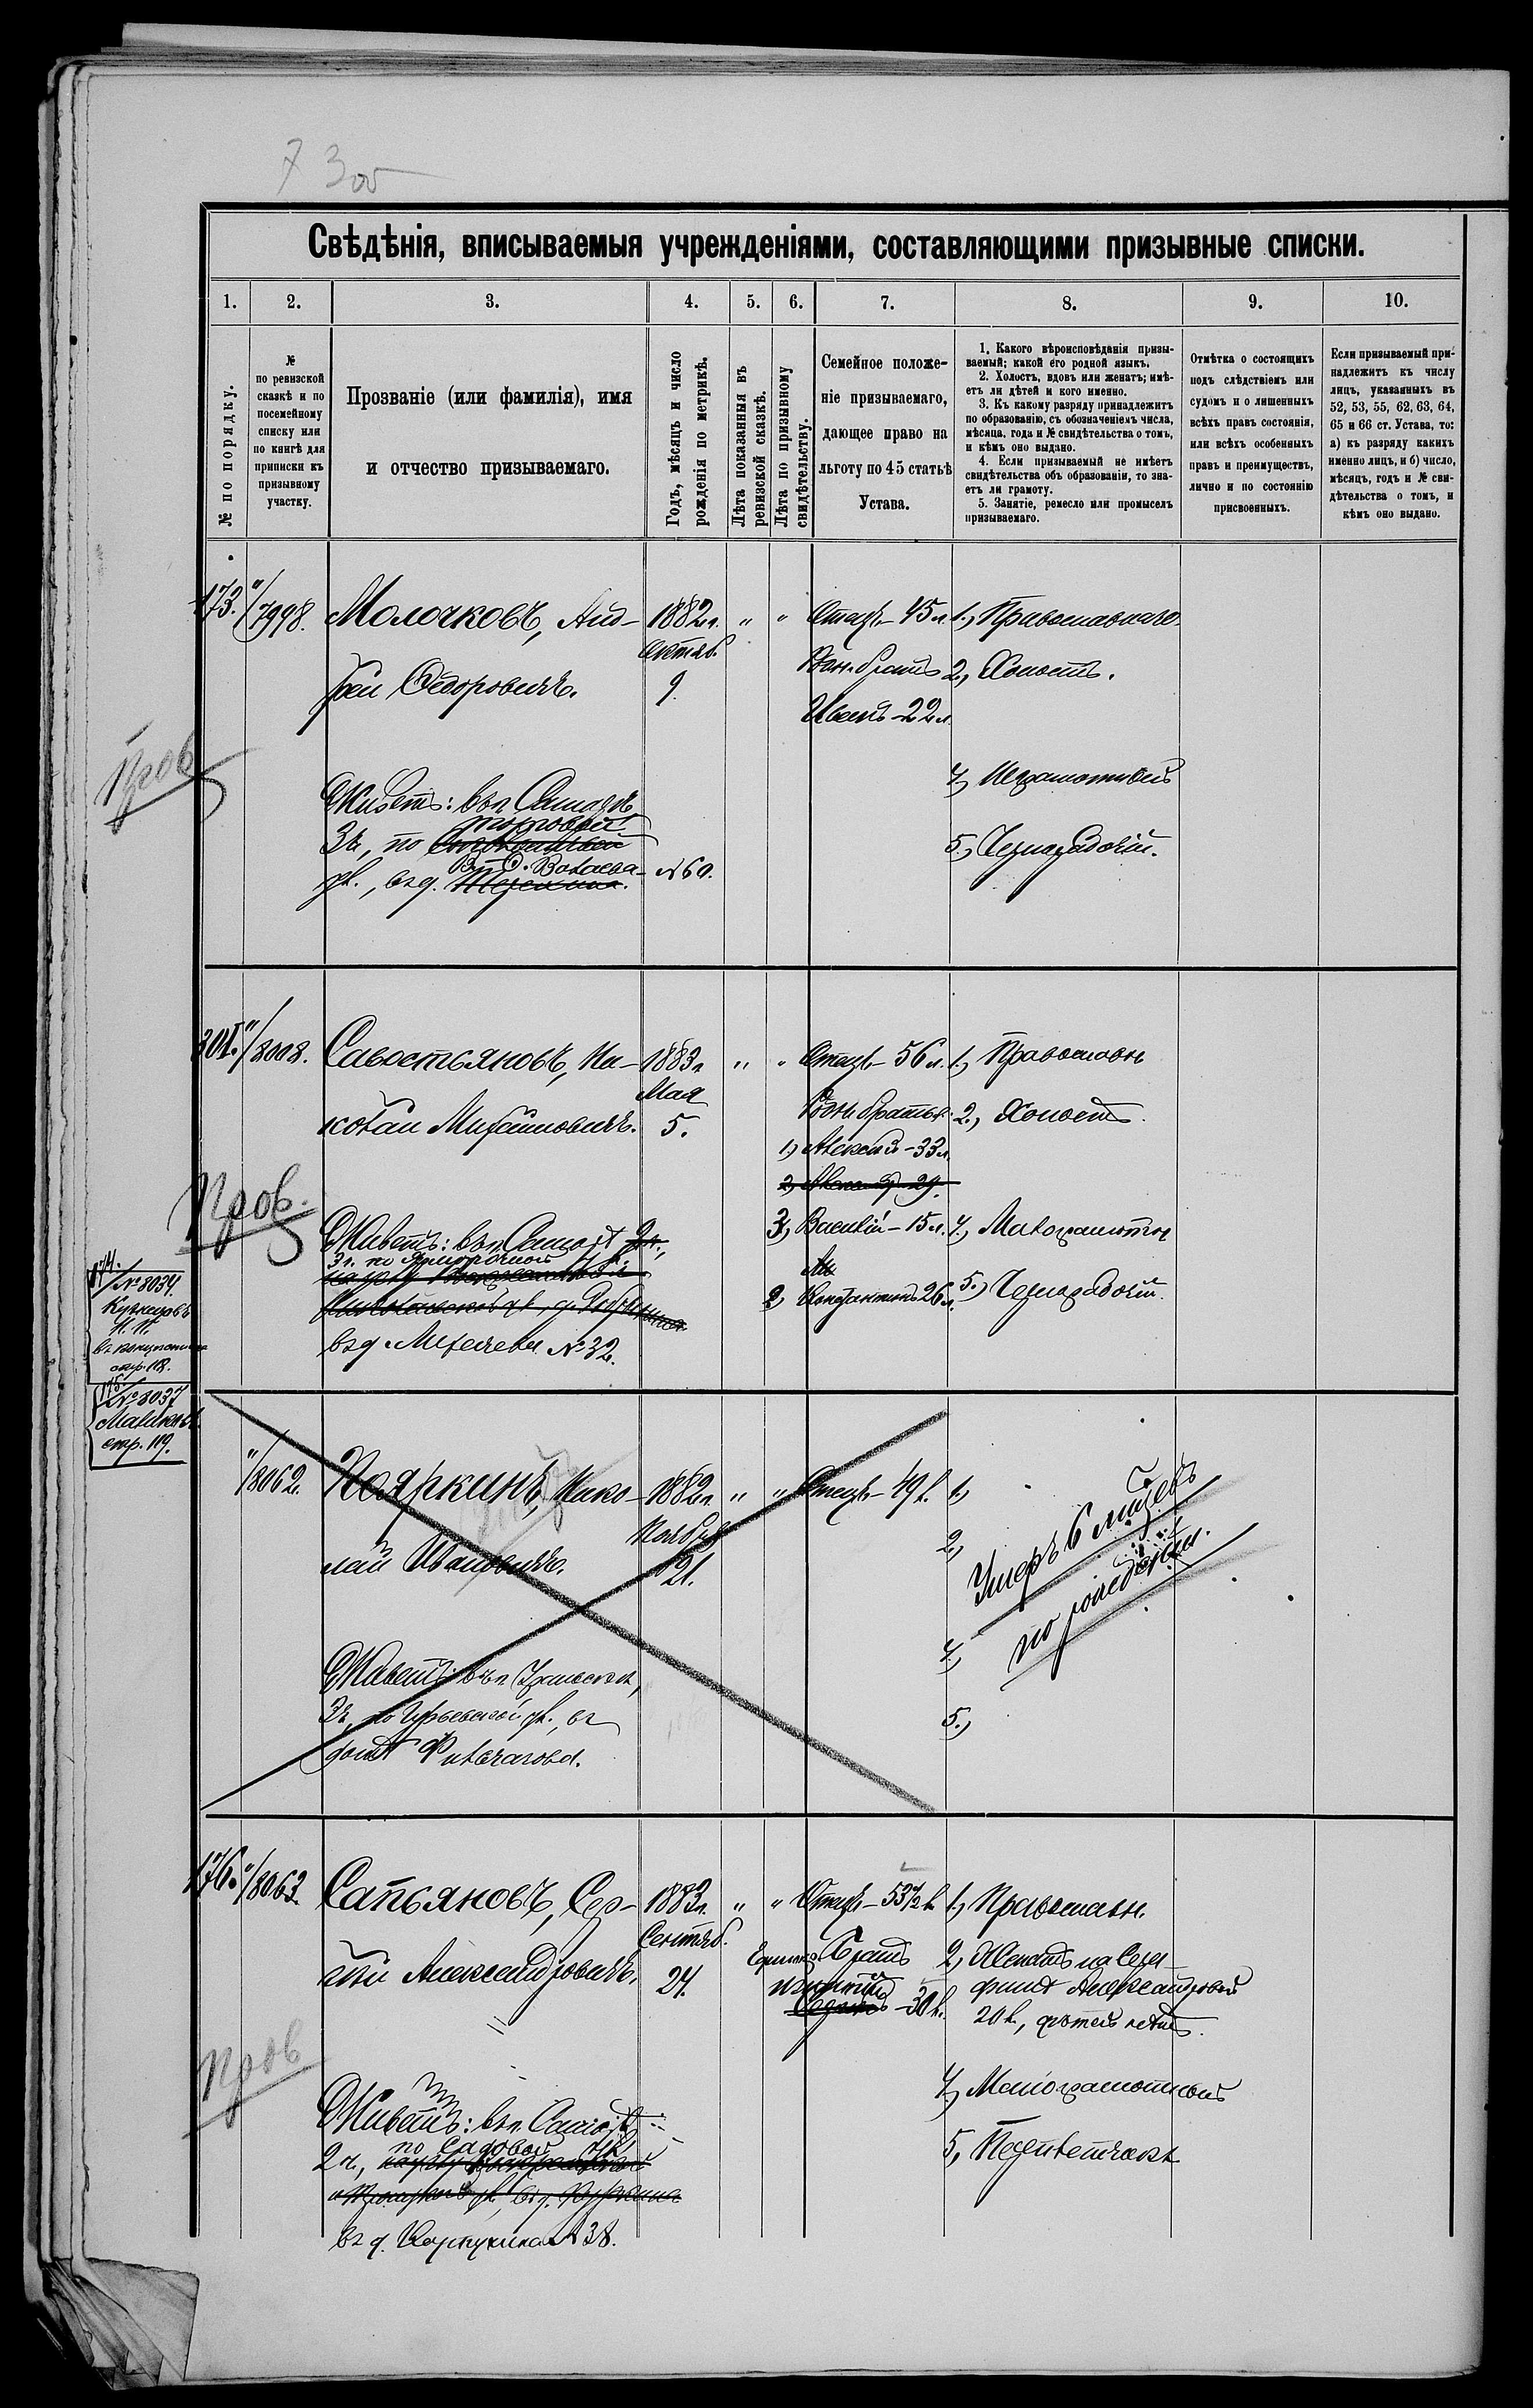 7 300
Свѣдѣнія, вписываемыя учрежденіями, составляющими призывные списки.
1. 2. 3. 4. 5. 6. 7. 8. 9. 10.
№ по порядку.
№
по ревизской
сказкѣ и по
посемейному
списку или
по книгѣ для
приписки къ
призывному
участку.
Прозваніе (или фамилія), имя
и отчество призываемаго.
Годъ, мѣсяцъ и число
рожденія по метрикѣ.
Лѣта показанныя въ
ревизской сказкѣ.
Лѣта по призывному
свидѣтельству.
Семейное положе-
ніе призываемаго,
дающее право на
льготу по 45 статьѣ
Устава.
1. Какого вѣроисповѣданія призы-
ваемый; какой его родной языкъ.
2. Холостъ, вдовъ или женатъ; имѣ-
етъ ли дѣтей и кого именно.
3. Къ какому разряду принадлежитъ
по образованію, съ обозначеніемъ числа,
мѣсяца, года и № свидѣтельства о томъ,
и кѣмъ оно выдано.
4. Если призываемый не имѣетъ
свидѣтельства объ образованіи, то зна-
етъ ли грамоту.
5. Занятіе, ремесло или промыселъ
призываемаго.
Отмѣтка о состоящихъ
подъ слѣдствіемъ или
судомъ и о лишенныхъ
всѣхъ правъ состоянія,
или всѣхъ особенныхъ
правъ и преимуществъ,
лично и по состоянію
присвоенныхъ.
Если призываемый при-
надлежитъ къ числу
лицъ, указанныхъ въ
52, 53, 55, 62, 63, 64,
65 и 66 ст. Устава, то:
а) къ разряду какихъ
именно лицъ, и б) число,
мѣсяцъ, годъ и № сви-
дѣтельства о томъ, и
кѣмъ оно выдано.
173. "/7998. Молочковъ, Анд- 1882 г. " " Отецъ - 45 л. 1., Православнаго
Октяб.
рей Ѳедоровичъ. 9. Родн. братъ 2., Холостъ.
Иванъ - 22 л.
Пров
4., Неграмотный
Живетъ: въ г. Самарѣ,
торговой
3 ч., по
5., Чернорабочій.
В. О. Волкова № 60.
ул., въ д.
301. "/8008. Савостьяновъ, Ни- 1883 г. " " Отецъ - 56 л. 1., Православн
Мая
колай Михайловичъ. 5. Родн. братья: 2., Холостъ.
1) Алексѣй - 33 л.
2) Александ 29.
Пров.
3) Василій - 15 л. 4., Малограмотн
Живетъ: въ г. Самарѣ 2 ч.,
3 ч. по
2) Константинъ 26 л. 5.) Чернорабочій.
въ д. Михеева № 32.
174.
"/№ 8034.
Кузнецовъ
стр. 118.
175.
"/№ 8037
стр. 119.
"/8062. Пояркинъ, Нико- 1882 г. " " Отецъ - 49 л. 1.,
Ноября
лай Ивановичъ. 21. 2.,
Умеръ 6 мѣсяцевъ
по рожденіи.
4.,
Живетъ: въ г. Уральскѣ,
3 ч., по Гурьевской ул., въ
5.,
домѣ Филичагова.
176. "/8063. Сапьяновъ, Сер- 1883 г. " " Отецъ - 53 1/2 л. 1., Православн.
Сентяб.
гѣй Александровичъ. 24. Братъ 2., Женатъ на Сера-
- 30 л. фимѣ Александровой
20 л., дѣтей нѣтъ.
Пров
4., Малограмотный
Живетъ: въ г. Самарѣ
по Садовой ул.
2 ч.,
5.,
въ д. Карпухина № 38.